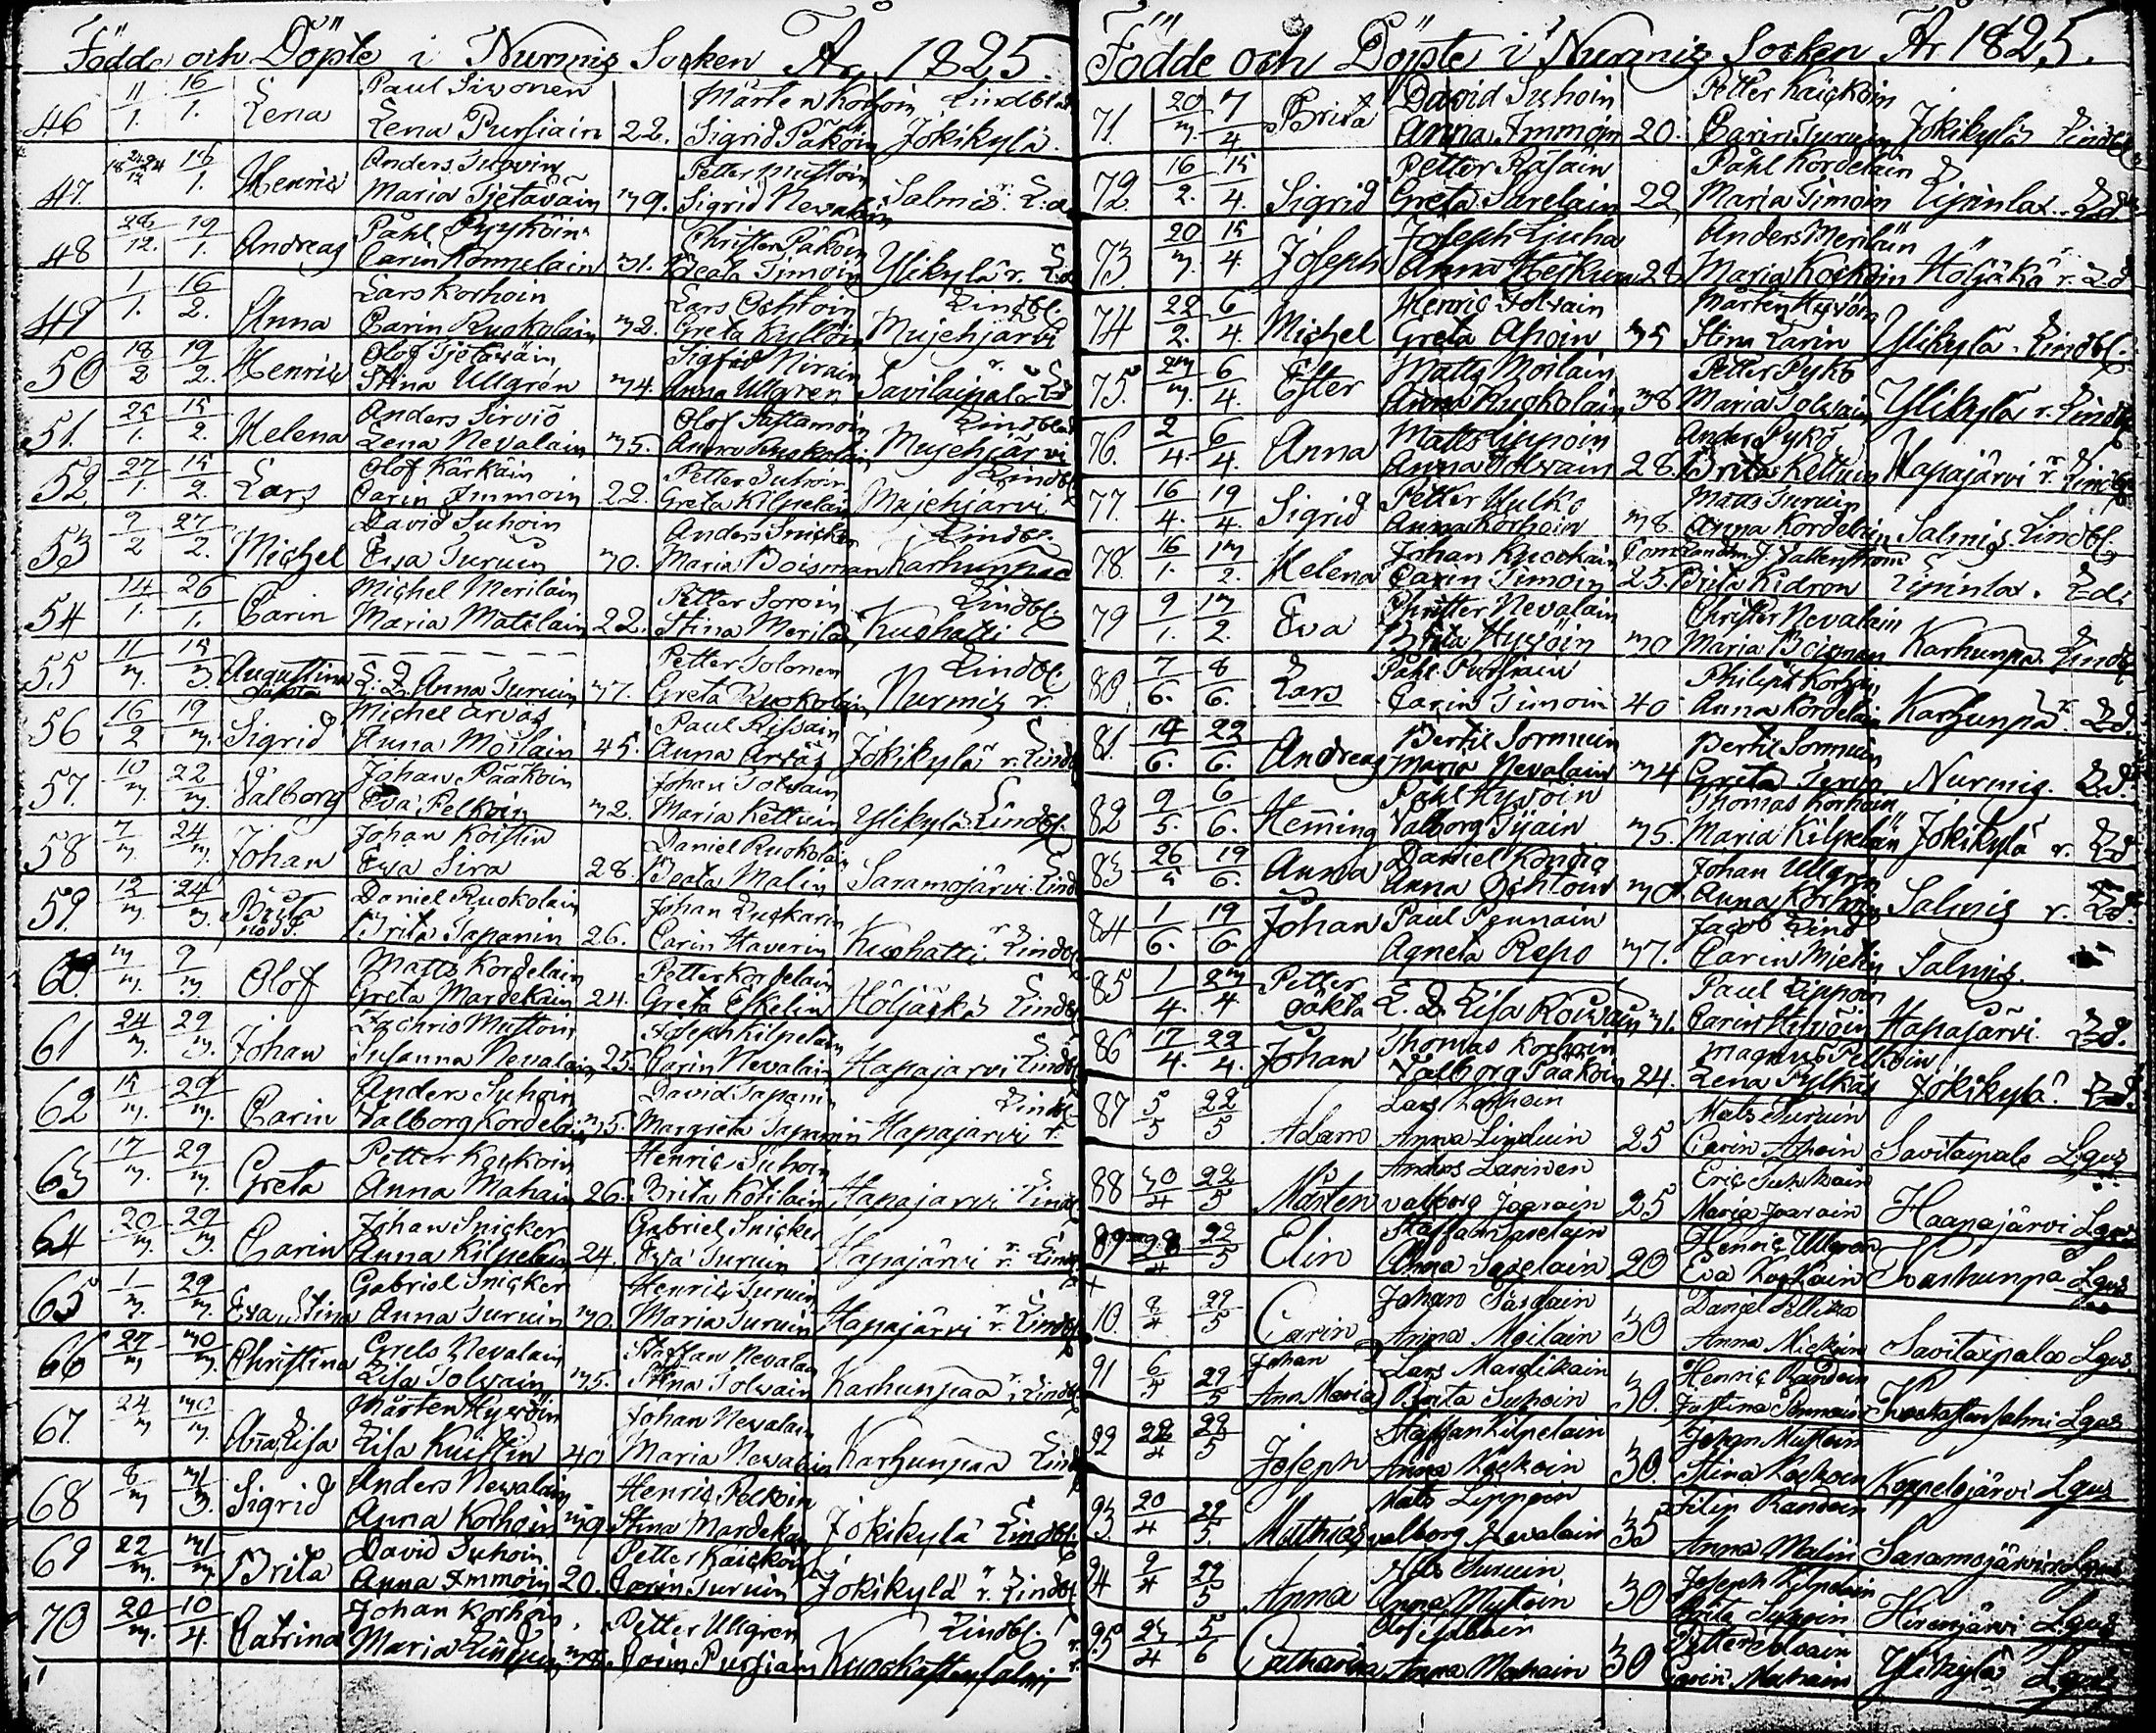 Födde och Döpte i Nurmis Socken År 1825.
46 11/1. 16/1. Lena Paul Siwonen Mårten Korhoin Lindblad
Lena Pursiain 22. Sigrid Päköin Jokikylä.
47. 1824 16/1. Henric Anders Petter Mustoin
Maria Tjetäväin 39. Sigrid Newalain Salmis r. L.d
48 26/12. 19/1. Andreas Påhl Pyyköin Christer Päköin
Carin Konnelain 31. Beata Timoin Ylikylä r. L.d
49 1/1. 16/2. Anna Lars Korhoin Lars Ochtoin Lindbl.
Carin Ruokolain 32. Greta Kyllöin Mujehjärvi
50 18/2 19/2. Henric Olof Tjetäwäin Sigfrid Nirain
Stina Ullgrén 34. Anna Ullgren Savilaipal r. Ld
51. 25/1. 15/2. Helena Anders Sirviö Olof Sattamoin Lindblad
Lena Nevalain 35. Anna Ruokolain Mujehjärvi
52. 27/1. 15/2. Lars Olof Kärkäin Petter Suhoin Lindbl
Carin Immoin 22. Greta Kilpelain Mujehjärvi
53 9/2 27/2. Michel David Suhoin Anders Snicker Lindbl.
Eva Turuin 30. Maria Boisman Karhunpää
54 14/1. 26/1. Carin Michel Merilain Petter Soroin Lindbl.
Maria Matilain 22. Stina Merilä Kuohatti
55 11/3. 15/3. Augustina L. D. Anna Turuin 37. Petter Tolonen Lindbl.
Greta Ruokolain Nurmis r.
56 16/2 19/3. Sigrid Michel Arväs Paul Rissain
Anna Moilain 45. Anna Arväs Jokikylä r. Lindb
57. 10/3. 22/3. Valborg Johan Pääköin Johan Tolwain
Eva Pelkoin 32. Maria Kettuin Ylikylä Lindbl.
58 7/3. 24/3. Johan Johan Koistin Daniel Ruokolain
Eva Sira 28. Beata Malin Saramojärvi Lind
59. 12/3. 24/3. Brita Daniel Ruokolain Johan Luckarin
Brita Tapanin 26. Carin Haverin Kuohatti r. Lindbl
60. 3/3. 9/3. Olof Matts Kordelain Petter Kordelain
Greta Mardekain 24. Greta Eskelin Höljäkkä Lindbl
61 24/3. 29/3. Johan Zachris Mustoin Joseph Kilpelain
Susanna Nevalain 25. Carin Nevalain Hapajarvi Lindb
62 15/3. 29/3. Carin Anders Suhoin David Tapani Lindbl
Valborg Kordela 35. Margreta Tapanin Hapajarvi r.
63 17/3. 29/3. Greta Petter Kockoin Henric Suhoin
Anna Mahain 26. Brita Kotilain Hapajarvi Lindb
64 20/3. 29/3. Carin Johan Snicker Gabriel Snicker
Anna Kilpelain 24. Eva Turuin Hapajärvi r. Lind
65 1/3. 29/3. Eva Stina Gabriel Snicker Henric Turuin
Anna Turuin 30. Maria Turuin Hapajärvi r. Lindb
66 27/3 30/3. Christina Grels Nevalain Staffan Nevalain
Lisa Tolwain 35. Stina Tolwain Karhunpaa r. Lindb
67. 24/3 30/3. Anna Lisa Mårten Hyvöin Johan Nevalain
Lisa Kuistin 40 Maria Newalain Karhunpaa Lind
68 8/3 31/3. Sigrid Anders Nevalain Henric Pelkoin
Anna Korhoin 39. Stina Mardekain Jokikylä Lindbl.
69 22/3. 31/3. Brita David Suhoin Petter Kaickoin
Anna Immoin 20. Carin Turuin Jokikylä r. Lindbl
70 20/3. 10/4. Catrina Johan Korhoin Petter Ullgren Lindbl.
Maria 38. Carin Pursiain Kuockastensalmi r.
Födde och Döpte i Nurmis Socken År 1825.
71 20/3. 7/4 Brita David Suhoin Petter Kaickoin
Anna Immoin 20. Carin Turuin Jokikylä Lindbl
72. 16/2. 15/4. Sigrid Petter Räsain Påhl Kordelain
Greta Sarelain 22 Maria Timoin Lipinlax. Ld
73. 20/3. 15/4. Joseph Joseph Ljuha Anders Meriläin
Anna Heikura 28 Maria Kockoin Höljäkä r. L.d
74 22/2. 6/4. Michel Henric Tolvain Mårten Hyvöin
Greta Ahoin 35 Stina Larin Ylikylä. Lindbl.
75. 27/3. 6/4. Ester Matts Moilain Petter Pykö
Anna Ruokolain 38 Maria Tolvain Ylikylä r. Lindb
76. 2/4. 6/4. Anna Matts Lippoin Anders Pykö
Anna Tolvain 28. Brita Kettuin Hapajärvi r. Lindb
77. 16/4. 19/4. Sigrid Petter Hulko Matts Turuin
Anna Korhoin 38 Anna Kordelain Salmis Lindbl.
78. 16/1. 13/2. Helena Johan Kuockain
Carin Timoin 25. Brita Kidron Lipinlax. Ld.
79 9/1. 13/2. Eva Christer Nevalain Christer Nevalain
Brita Hyvöin 30 Maria Boisman Karhunpä. Lindb
80. 7/6. 8/6. Lars Påhl Pursiain Philip Korhoin
Carin Timoin 40 Anna Kordelain Karhunpä r. Ld.
81 14/6. 22/6. Andreas Bertil Sormuin Bertil Sormuin
Maria Nevalain 34 Greta Tervo Nurmis. L.d.
82 9/5. 6/6. Heming Påhl Hyvöin Thomas Korhoin
Valborg Tijain 35. Maria Kilpeläin Jokikylä r. Ld
83 26/5 19/6. Anna Daniel Kondia Johan Ullgren
Anna Ochtoin 30. Anna Korhoin Salmis r. Ld.
84 1/6. 19/6. Johan Paul Pennain Jacob Lind
Agneta Repo 37. Carin Miekin Salmis.
85 1/4. 27/4 Petter oäkta L. D. Lisa Roivain 31. Paul Lippoin
Carin Hyvöin Hapajärvi. Ld.
86 17/4. 22/4. Johan Thomas Korhoin Magnus Pelkoin
Valborg Pääköin 24. Lena Pylkäs Jokikylä. Ld.
87 5/5 22/5 Adam Lars Mats Turuin
Anna Linduin 25 Carin Ahoin Savitaipale Lgus
88 30/4 22/5 Mårten Anders Larinen Eric
Valborg Joarain 25 Maria Joarain Haapajärvi Lgus
89 28/4 22/5 Elin Staffan Savelain Henric Ullgren
Anna Savelain 20 Eva Kockoin Karhunpä Lgus
10 8/4 22/5 Carin Johan Daniel
Anna Moilain 30 Anna Miekin Savitaipale Lgus
91 6/5 22/5 Johan Lars Mardikain Henric Randoin
Ann Maria Brita Suhoin 30. Justina Pennain Kuokastensalmi Lgus
92 22/4 22/5 Joseph Staffan Kilpelain Johan Mustoin
Anna Kockoin 30. Stina Kockoin Koppelojärvi Lgus
93. 20/4 22/5. Mathias Mats Lippoin Filip Randoin
Valborg Nevalain 35 Anna Malin Saramojärvi Lgus
94 9/4 22/5 Anna Nils Turuin Joseph Kilpelain
Anna Mustoin 30 Brita Hirvenjärvi Lgus
95 25/4 5/6 Catharina Olof Petter Tolvain
Anna Mahain 30 Carin Mahain Ylikylä Lgus